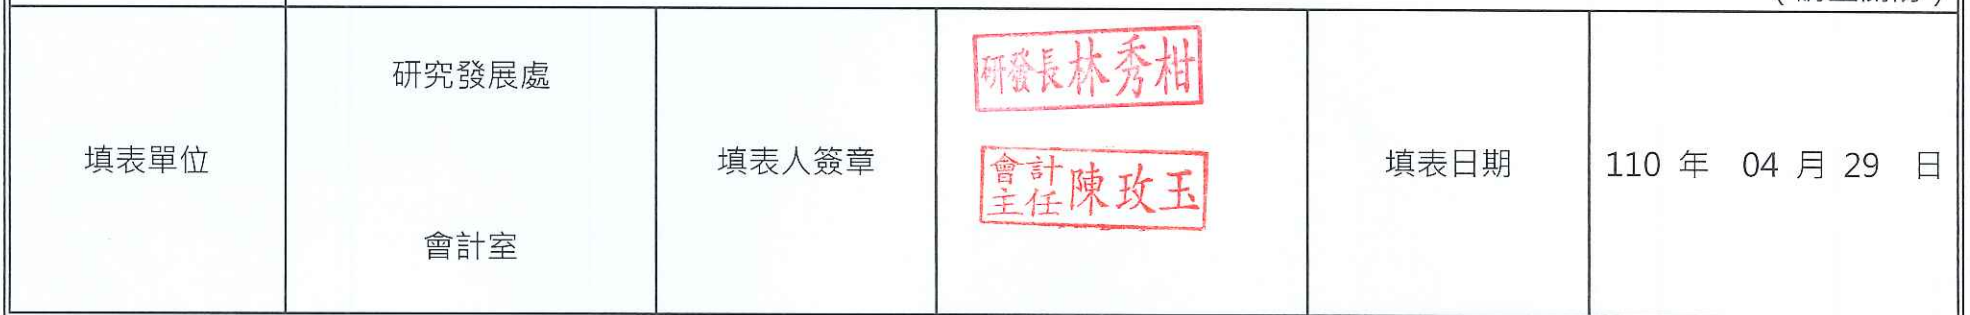 填表單位
研究發展處
會計室
填表人簽章
研發長林秀柑
會計主任陳玫玉
填表日期
110 年 04 月 29 日